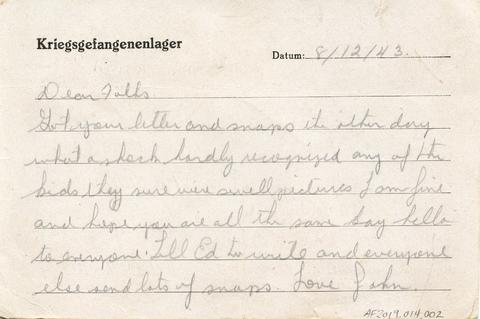 Kriegsgefangenenlager
Datum: 8/12/43.
Dear Folks
Got your letter and snaps the other day
what a shock hardly recognized any of the
kids they sure were swell pictures I am fine
and hope you are all the same say hello
to everyone. Tell Ed to write and everyone
else send lots of snaps. Love John.
AF2019.014.002